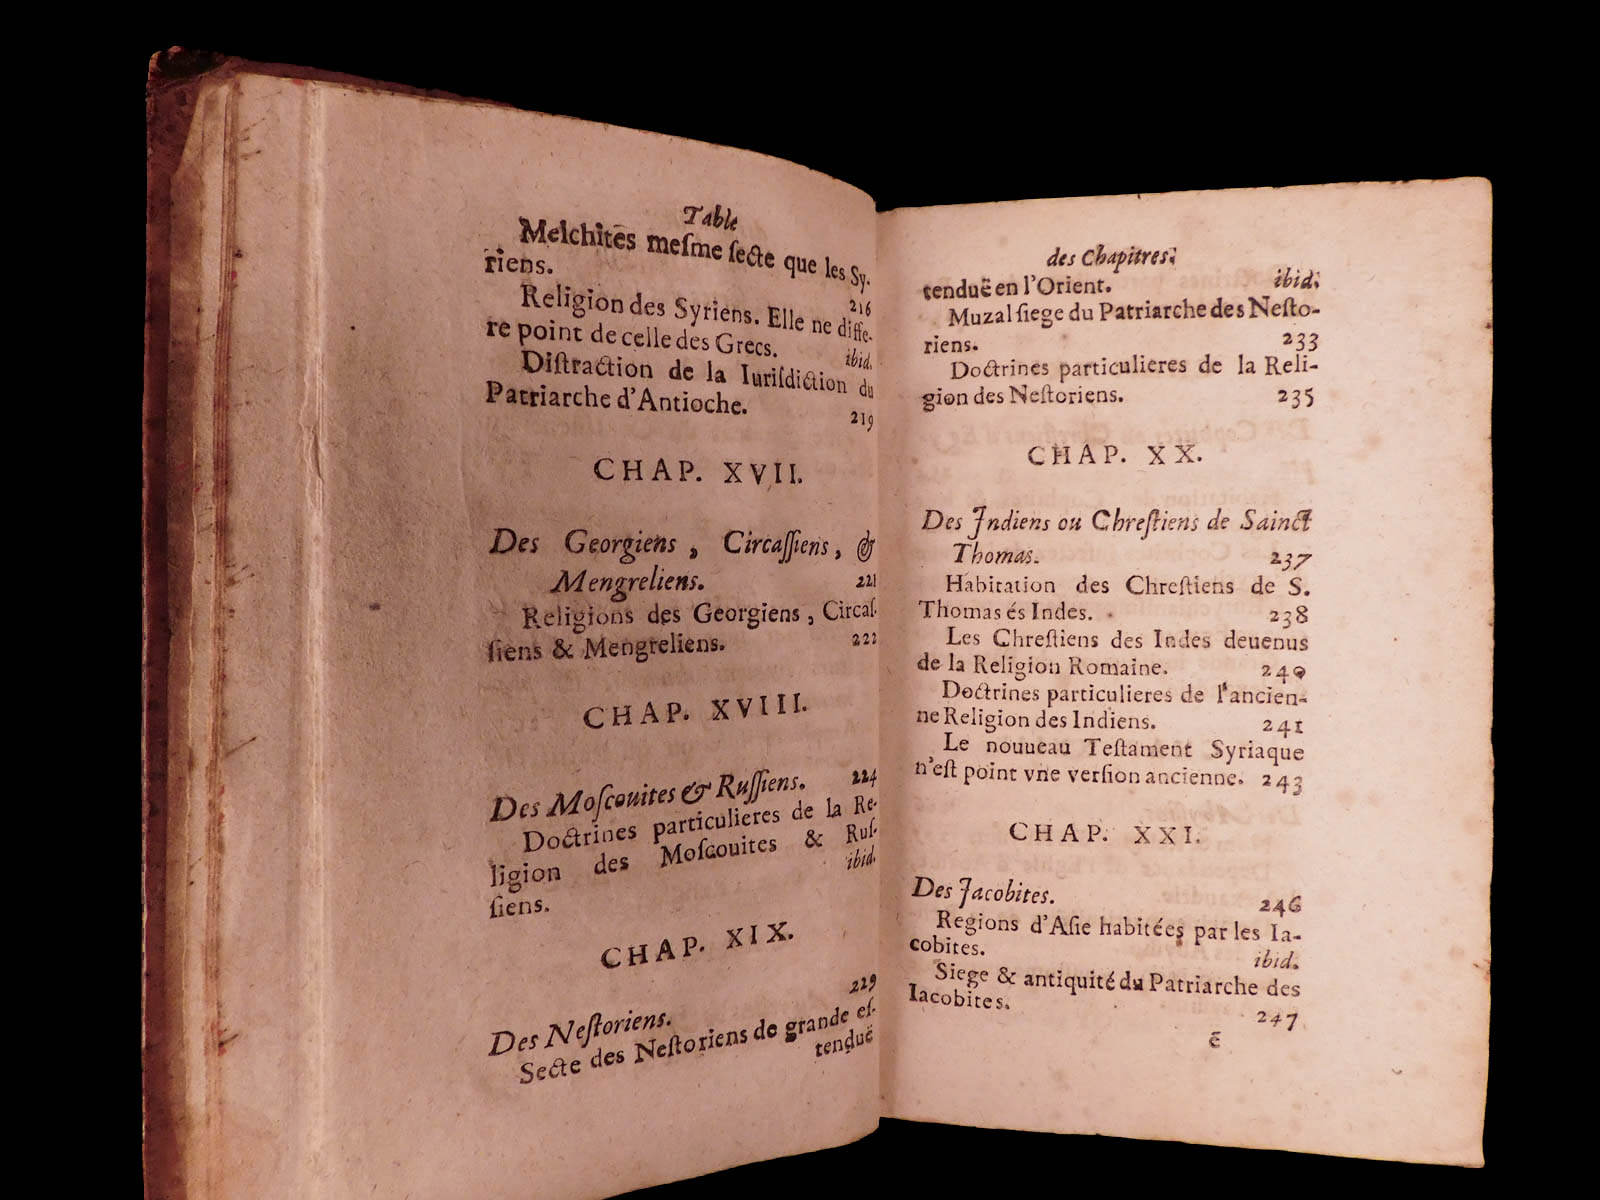 Table
Melchites meſme ſecte que les Sy-
riens. 216
Religion des Syriens. Elle ne diffe-
re point de celle des Grecs. ibid.
Diſtraction de la Iuriſdiction du
Patriarche d'Antioche. 219
CHAP. XVII.
Des Georgiens, Circaſſiens, &
Mengreliens. 221
Religions des Georgiens, Circaſ-
ſiens & Mengreliens. 222
CHAP. XVIII.
Des Moſcouites & Ruſſiens. 224
Doctrines particulieres de la Re-
ligion des Moſcouites & Ruſ-
ſiens. ibid.
CHAP. XIX.
Des Neſtoriens. 229
Secte des Neſtoriens de grande eſ-
tenduë
des Chapitres.
tenduë en l'Orient. ibid.
Muzal ſiege du Patriarche des Neſto-
riens. 233
Doctrines particulieres de la Reli-
gion des Neſtoriens. 235
CHAP. XX.
Des Indiens ou Chreſtiens de Sainct
Thomas. 237
Habitation des Chreſtiens de S.
Thomas és Indes. 238
Les Chreſtiens des Indes deuenus
de la Religion Romaine. 240
Doctrines particulieres de l'ancien-
ne Religion des Indiens. 241
Le nouueau Teſtament Syriaque
n'eſt point vne verſion ancienne. 243
CHAP. XXI.
Des Jacobites. 246
Regions d'Aſie habitées par les Ia-
cobites. ibid.
Siege & antiquité du Patriarche des
Iacobites. 247
ē